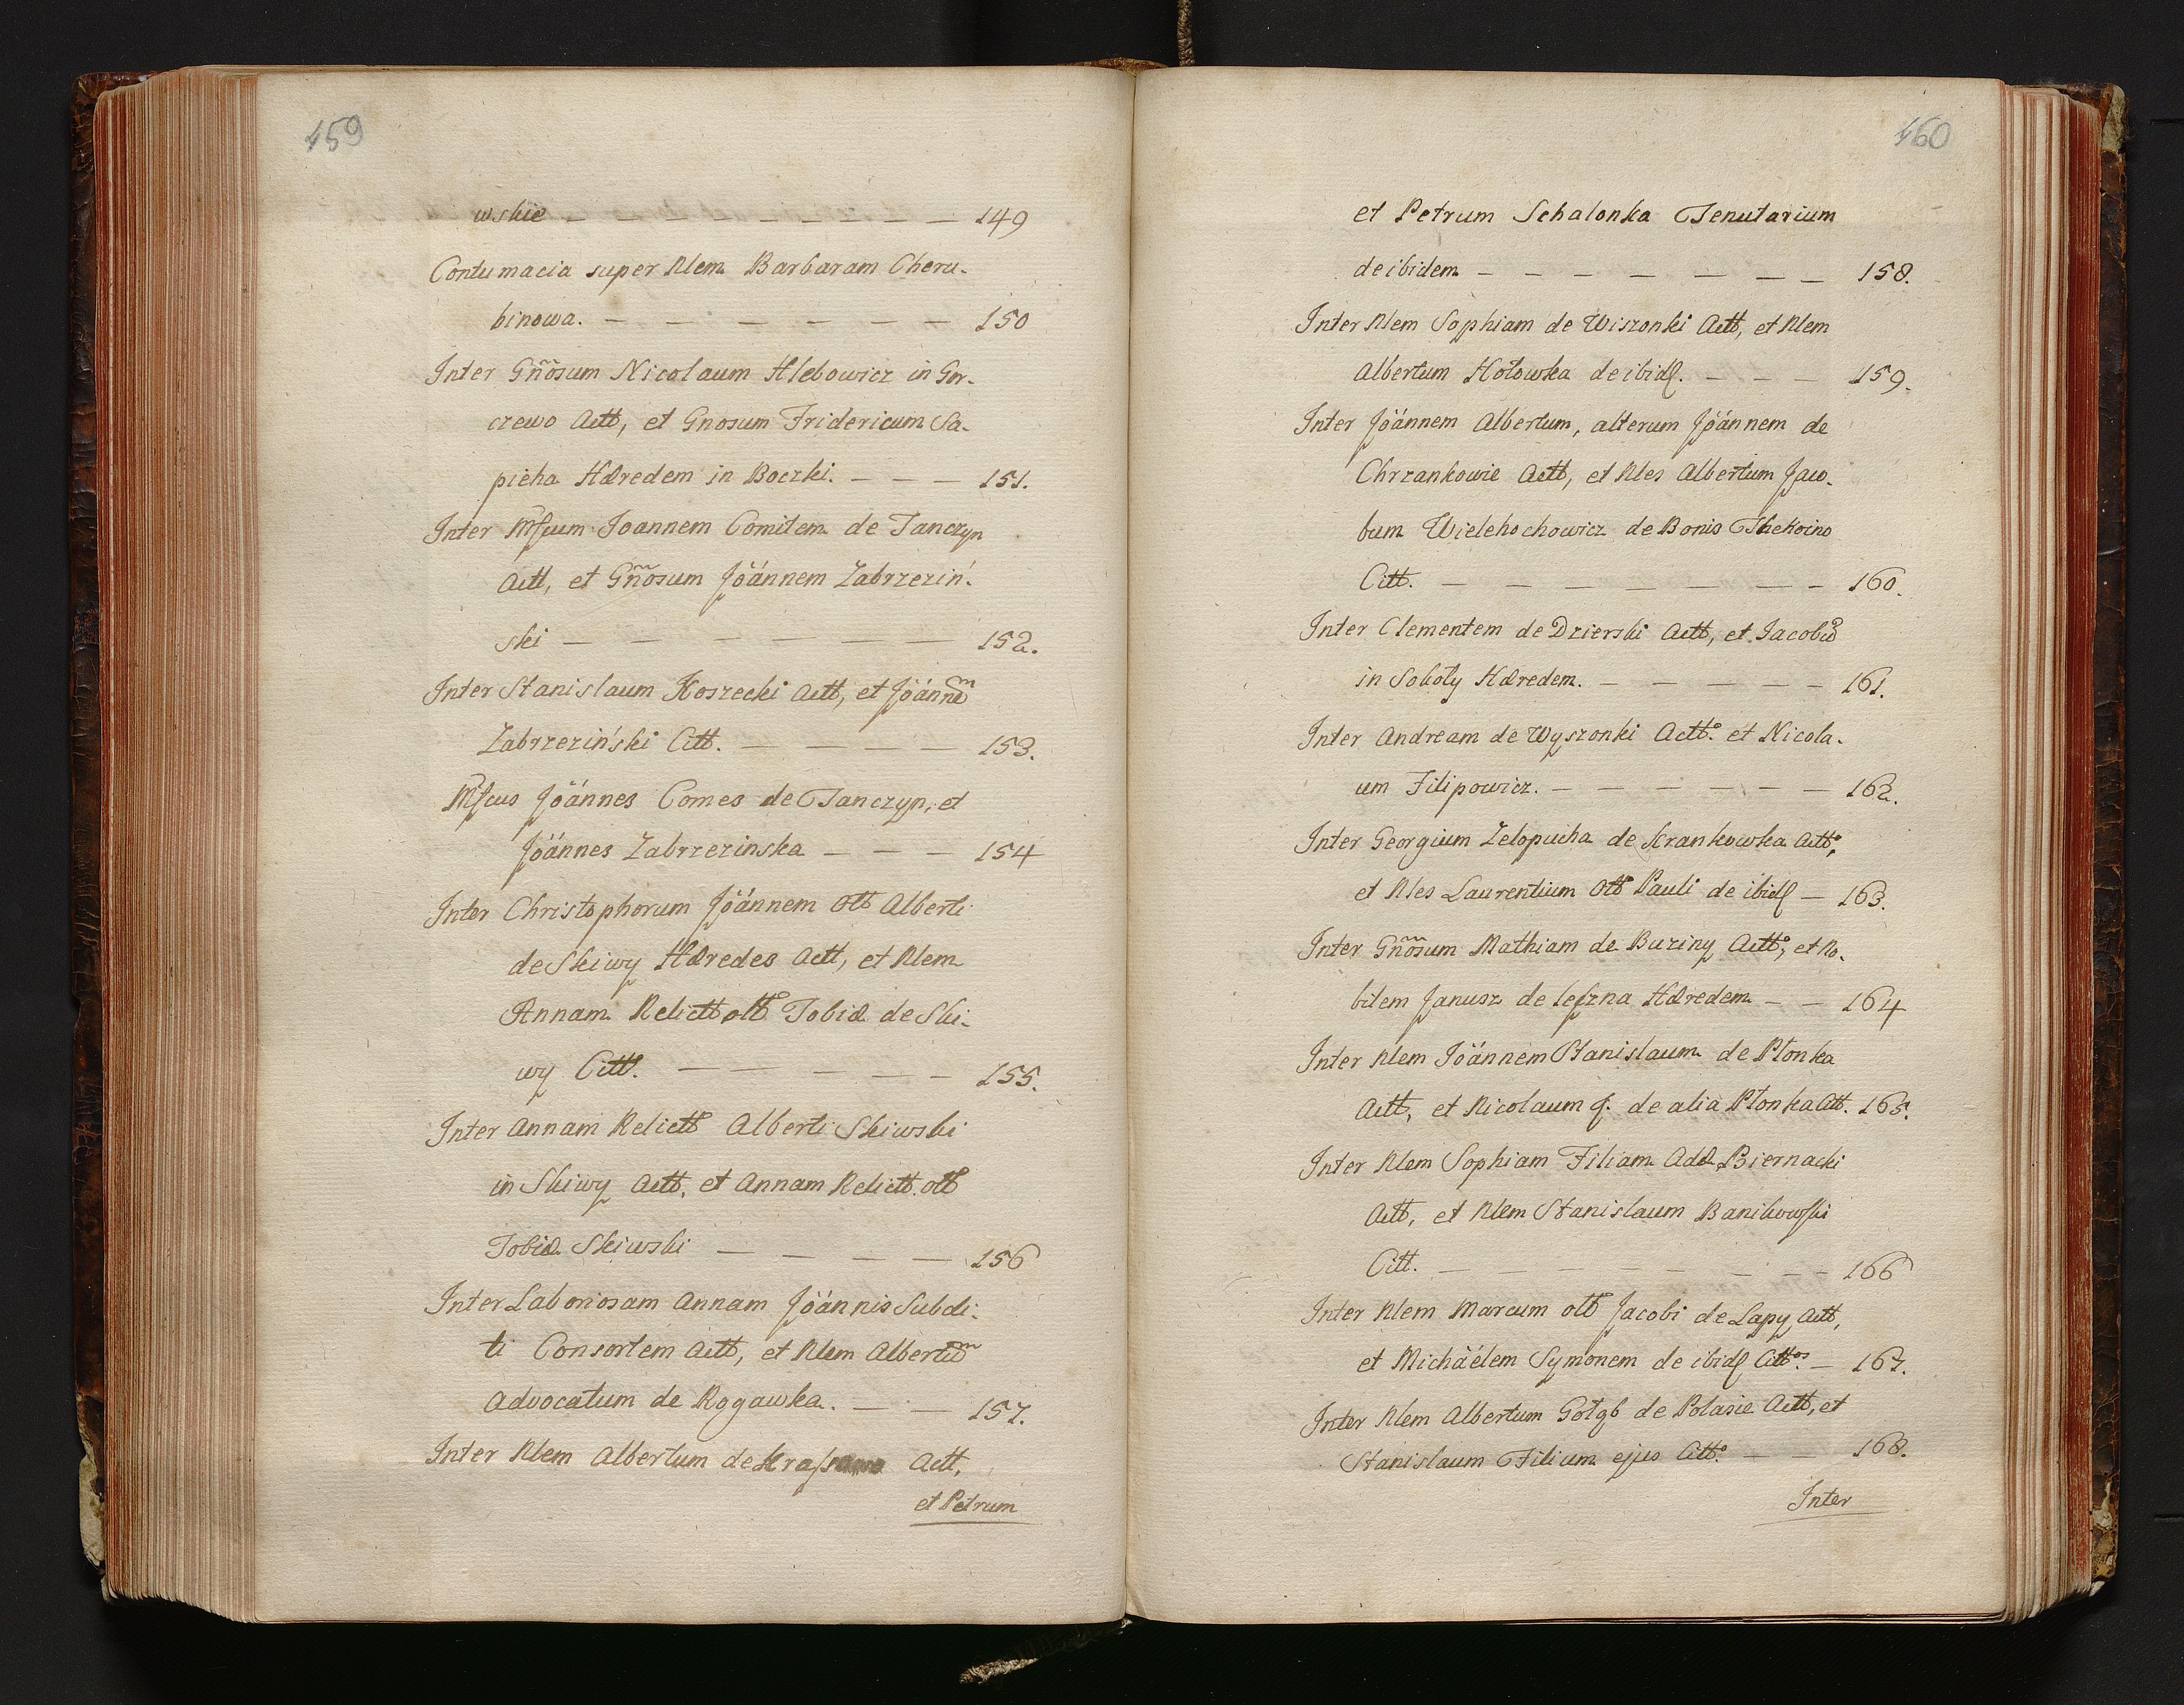 459
wskie — — — — — — — — 149
Contumacia super Nlem Barbaram Cheru-
binowa. — — — — — — — 150
Inter Gñosum Nicolaum Hlebowicz in Gor-
czewo Actt, et Gnosum Fridericum Sa-
pieha Hæredem in Boczki. — — — 151.
Inter Mfcum Joannem Comitem de Tanczyn
Actt, et Gñosum Jöánnem Zabrzeziń-
ski — — — — — — — 152.
Inter Stanislaum Koszecki Actt, et Jöánnem
Zabrzeziński Citt. — — — — — 153.
Mfcus Jöánnes Comes de Tanczyn, et
Jöánnes Zabrzezinska — — — 154
Inter Christophorum Jöánnem Olt Alberti
de Skiwy Hæredes Actt, et Nlem
Annam Relictt olt Tobiæ de Ski-
wy Citt. — — — — — — 155.
Inter Annam Relictt Alberti Skiwski
in Skiwy Actt, et Annam Relictt. olt
Tobiæ Skiwski — — — — — 156
Inter Laboriosam Annam Jöánnis Subdi-
ti Consortem Actt, et Nlem Albertum
Advocatum de Rogawka. — — — 157.
Inter Nlem Albertum de Actt,
et Petrum
460
et Petrum Schalonka Tenutarium
deibidem — — — — — — — 158.
Inter Nlem Sophiam de Wiszonki Actt, et Nlem
Albertum Hołowka de ibid. — — — 159.
Inter Jöánnem Albertum, alterum Jöánnem de
Chrzankowie Actt, et Nles Albertum Jaco-
bum Wielehochowicz de Bonis
Citt. — — — — — — — — 160.
Inter Clementem de Dzierski Actt, et Jacobũ
in Soboly Hæredem. — — — — — 161.
Inter Andream de Wyszonki Actt. et Nicola-
um Filipowicz. — — — — — — 162.
Inter Georgium Zelopucha de Krankowka Actt,
et Nles Laurentium Olt Pauli de ibid — 163.
Inter Gñosum Mathiam de Buziny Actt, et No-
bilem Janusz de Leszna Hæredem — — 164
Inter Nlem Jöánnem Stanislaum de Plonka
Actt, et Nicolaum f. de alia Plonka Citt. 165.
Inter Nlem Sophiam Filiam Adæ Biernacki
Actt, et Nlem Stanislaum Banikowski
Citt. — — — — — — — — 166
Inter Nlem Marcum olt Jacobi de Lapy Actt,
et Michäélem Symonem de ibid Cittos. — 167.
Inter Nlem Albertum Gołąb de Polasie Actt, et
Stanislaum Filium ejus Citt. — — 168.
Inter